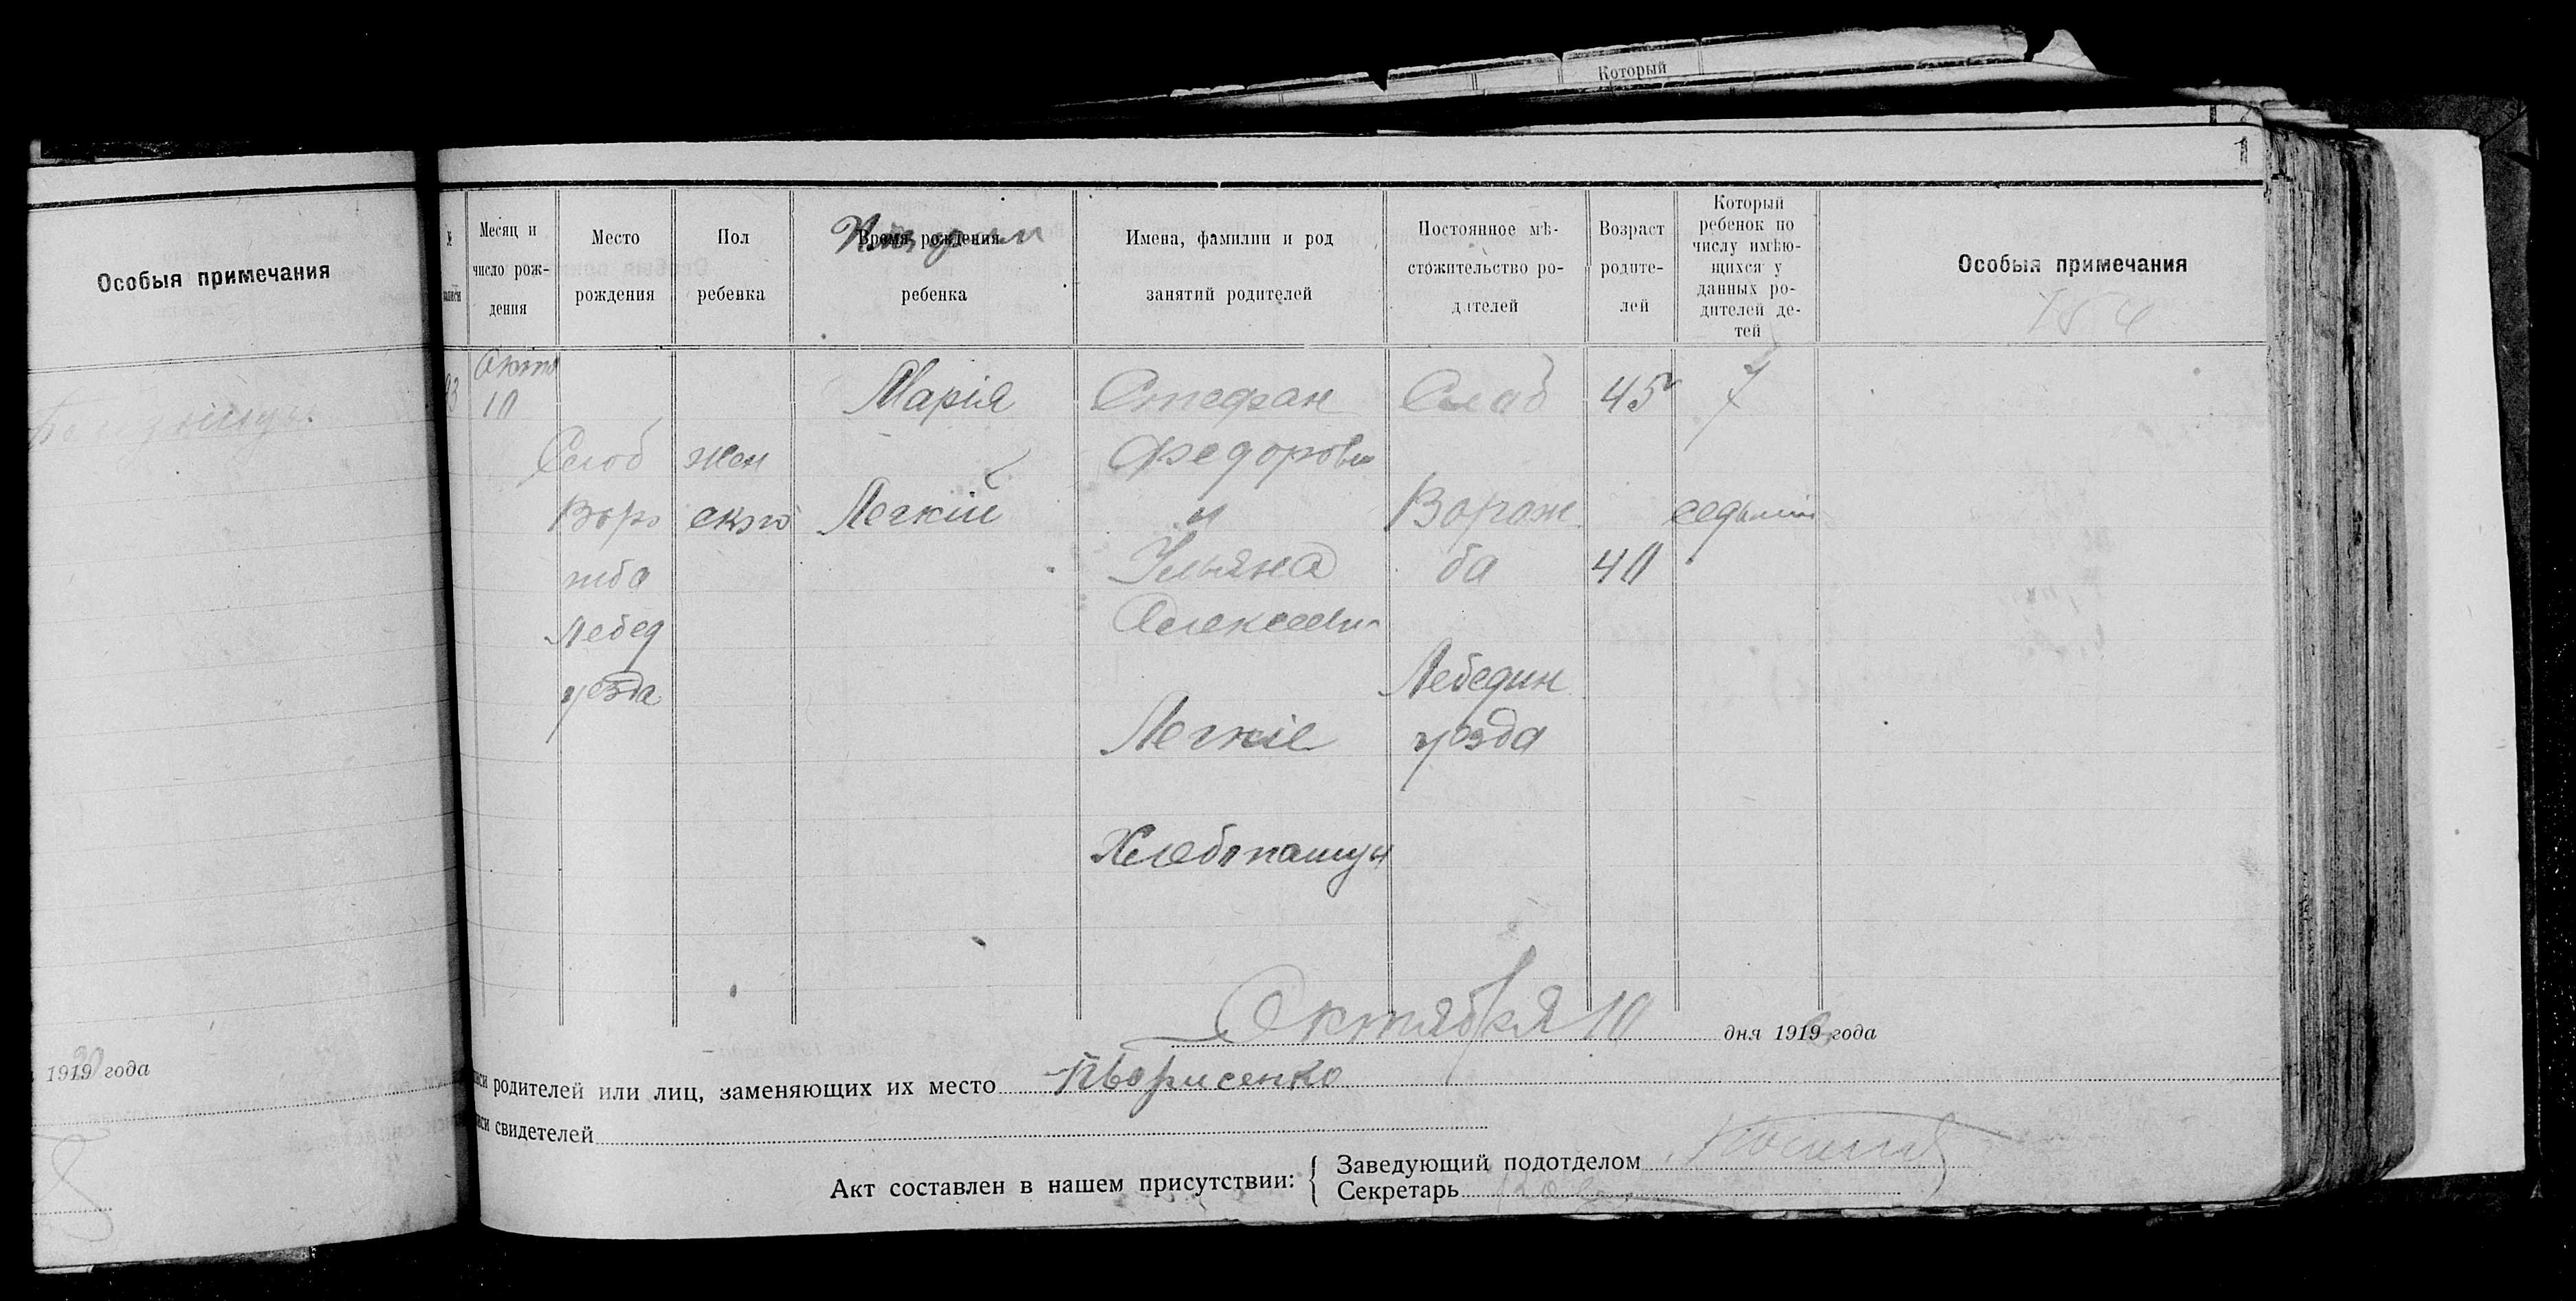 Который
1
Особыя примечания
1919 года
№
записи
Месяц и
число рож-
дения
Место
рождения
Пол
ребенка
Время рождения
ребенка
Имена, фамилии и род
занятий родителей
Постоянное мѣ-
стожительство ро-
дителей
Возраст
родите-
лей
Который
ребенок по
числу имѣю-
щихся у
данных ро-
дителей де-
тей
Особыя примечания
Окт
10
Слоб
Воро
жба
Лебед
уезда
жен
ского
Марія
Легкій
Стефан
Федоров
и
Ульяна
Алексеевн
Легкіе
Хлебопашцы
Слоб
Ворож
ба
Лебедин
уезда
45
40
7
седьмий
Октября 10 дня 1919 года
родителей или лиц, заменяющих их место
свидетелей
Акт составлен в нашем присутствии:
Заведующий подотделом
Секретарь